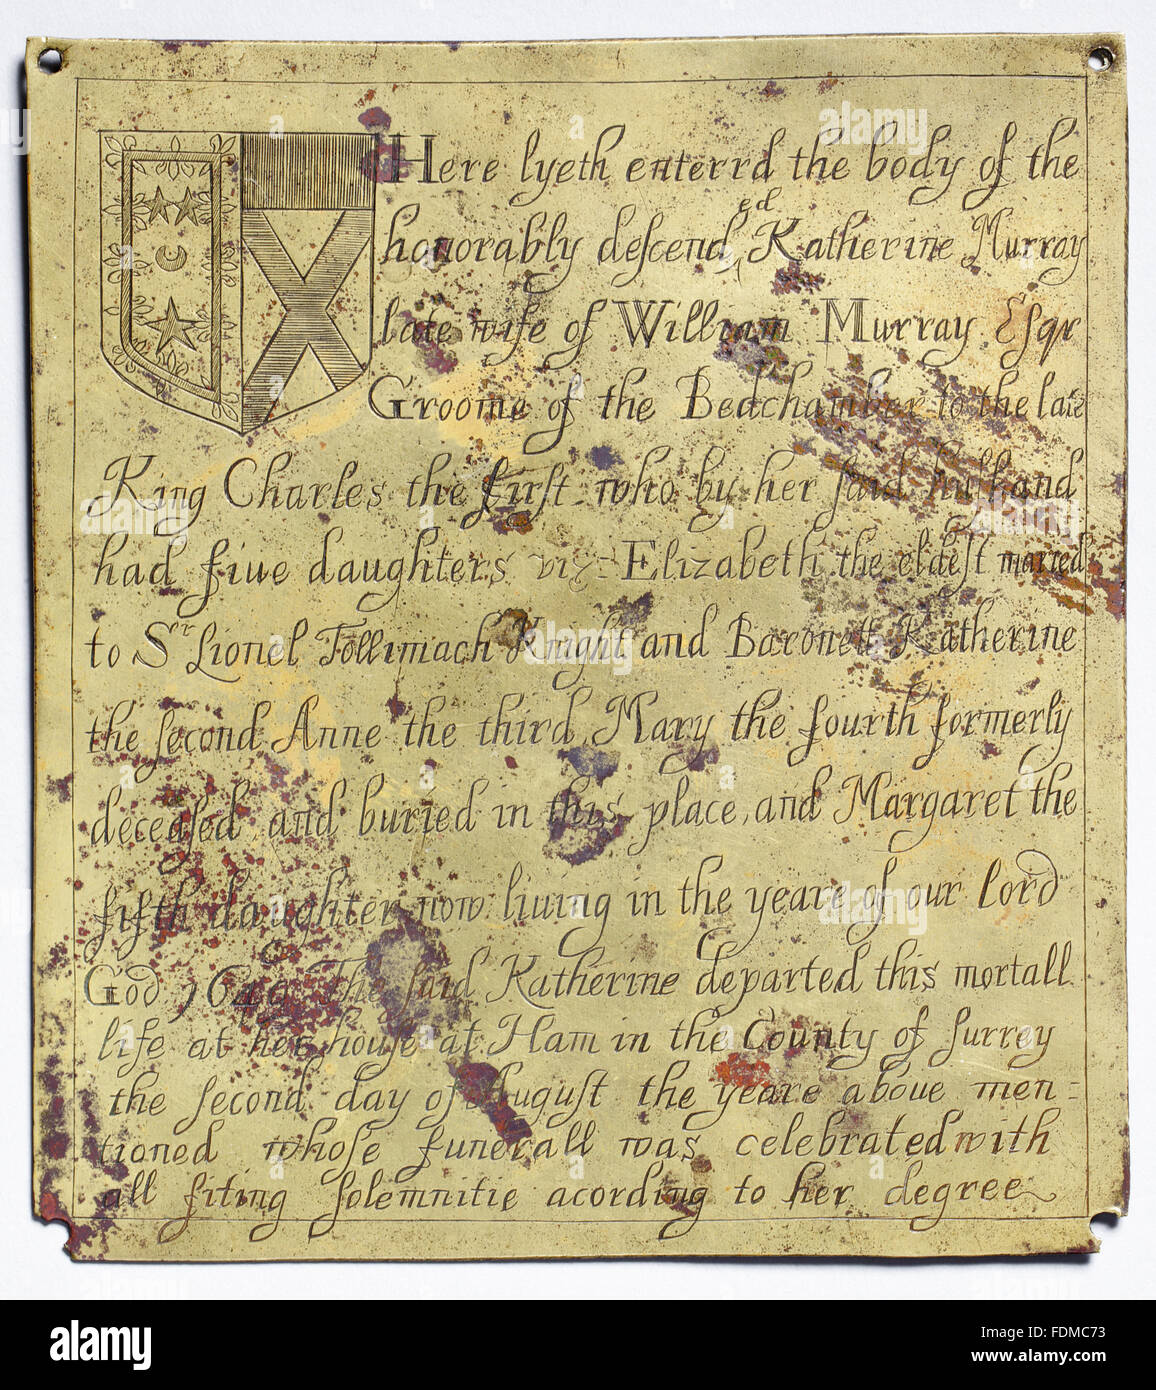 Here lyeth enterrd the body of the
honorably descend^ed Katherine Murray
late wife of William Murray Esqr
Groome of the Bedchamber to the late
King Charles the first who by her said husband
had fiue daughters viz: Elizabeth the eldest maried
to Sr Lionel Tollimach Knight and Baronett Katherine
the second Anne the third, Mary the fourth formerly
deceased, and buried in this place, and Margaret the
fifth daughter now liuing in the yeare of our Lord
God 1649 The said Katherine departed this mortall
life at her house at Ham in the County of Surrey
the second day of August the yeare aboue men=
tioned whose funerall was celebrated with
all fiting solemnitie acording to her degree
alamy
Image ID: FDMC73
www.alamy.com